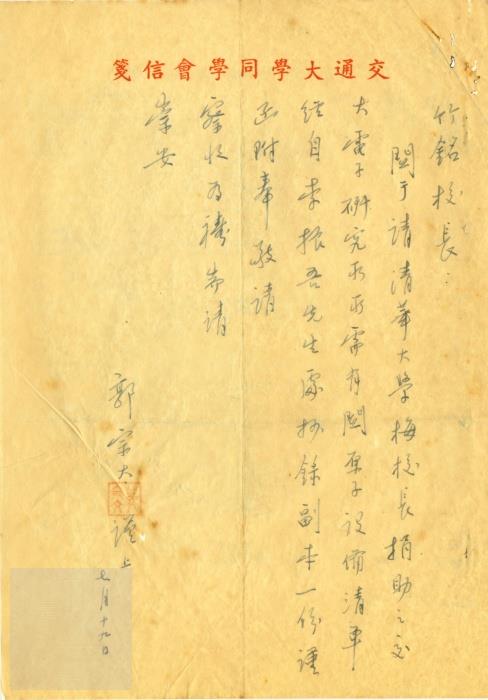 交通大學同學會信箋
竹銘校長：
關于請清華大學梅校長捐助之交
大電子研究所所需有關原子設備清單
經自李振吾先生處抄錄副本一份謹
函附奉 敬請
察收為禱 耑請
崇安
郭宗大 謹上
七月十九日